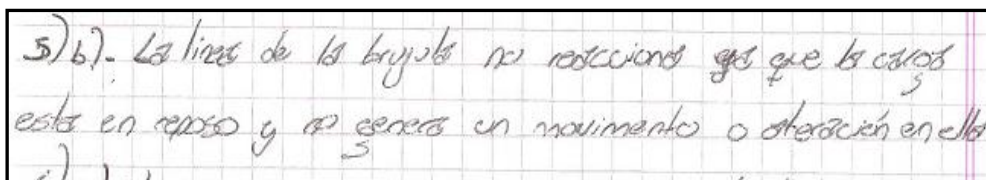 5) b).- La linea de la brujula no reacciona ya que la carga
esta en reposo y no genera un movimento o alteración en ella